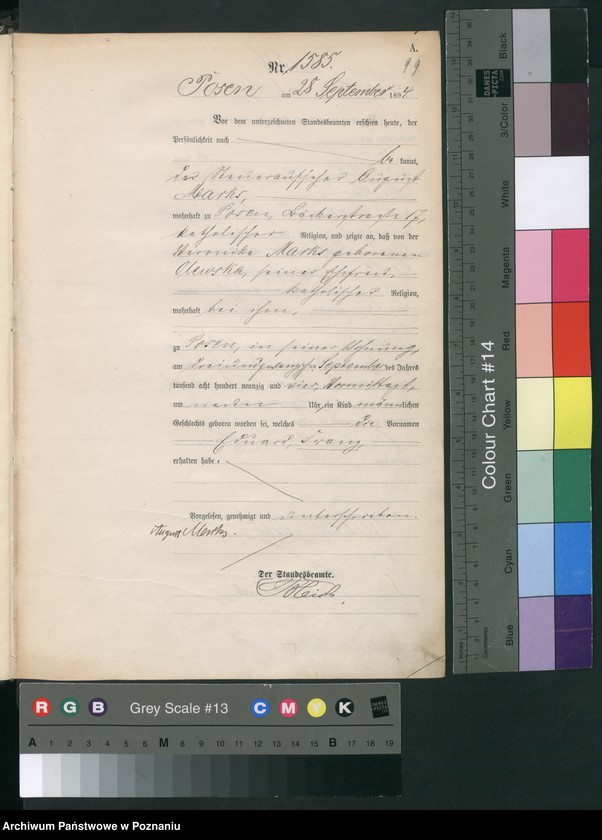 A.
99
Nr. 1585.
Posen am 28 September 1894
Vor dem unterzeichneten Standesbeamten erschien heute, der
Persönlichkeit nach
be kannt,
der Steueraufseher August
Marks,
wohnhaft zu Posen, Bäckerstraße 17,
katholischer Religion, und zeigte an, daß von der
Veronika Marks geborenen
Olewska, seiner Ehefrau,
katholischer Religion,
wohnhaft bei ihm,
zu Posen, in seiner Wohnung,
am dreiundzwanzigsten September des Jahres
tausend acht hundert neunzig und vier, Vormittags,
um Uhr, ein Kind männlichen
Geschlechts geboren worden sei, welches die Vornamen
Eduard, Franz,
erhalten habe.
Vorgelesen, genehmigt und unterschrieben.
August Marks.
Der Standesbeamte.
Colour Chart #14
Black
3/Color
White
Magenta
Red
Yellow
Green
Cyan
Blue
DANES
PICTA
Centimetres
Inches
R G B Grey Scale #13 C M Y K
DANES
PICTA
A 1 2 3 4 5 6 M 8 9 10 11 12 13 14 15 B 17 18 19
Archiwum Państwowe w Poznaniu